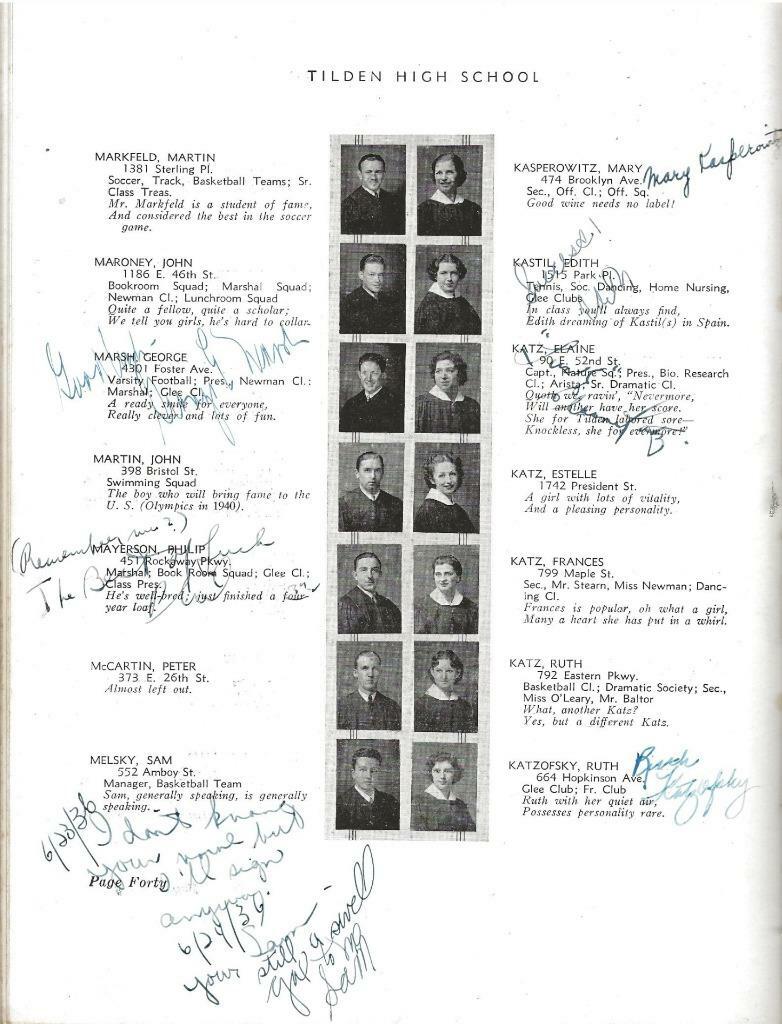 TILDEN HIGH SCHOOL
MARKFELD, MARTIN
1381 Sterling Pl.
Soccer, Track, Basketball Teams; Sr.
Class Treas.
Mr. Markfeld is a student of fame,
And considered the best in the soccer
game.
MARONEY, JOHN
1186 E. 46th St.
Bookroom Squad; Marshal Squad;
Newman Cl.; Lunchroom Squad
Quite a fellow, quite a scholar;
We tell you girls, he's hard to collar.
Good luck
George Marsh
MARSH, GEORGE
4301 Foster Ave.
Varsity Football; Pres., Newman Cl.;
Marshal; Glee Cl.
A ready smile for everyone,
Really clever and lots of fun.
MARTIN, JOHN
398 Bristol St.
Swimming Squad
The boy who will bring fame to the
U. S. (Olympics in 1940).
(Remember me?)
The Best of luck
MAYERSON, PHILIP
451 Rockaway Pkwy.
Marshal; Book Room Squad; Glee Cl.;
Class Pres.
He's well-bred; just finished a four-
year loaf.
McCARTIN, PETER
373 E. 26th St.
Almost left out.
MELSKY, SAM
552 Amboy St.
Manager, Basketball Team
Sam, generally speaking, is generally
speaking.
6/23/36
I don't know
your name but
I'll sign
anyway.
Sam
6/24/36
your still a swell
gal to me
Sam
Page Forty
KASPEROWITZ, MARY
474 Brooklyn Ave.
Sec., Off. Cl.; Off. Sq.
Good wine needs no label!
Mary Kasperowitz
KASTIL, EDITH
1515 Park Pl.
Tennis, Soc. Dancing, Home Nursing,
Glee Clubs
In class you'll always find,
Edith dreaming of Kastil(s) in Spain.
Edith
KATZ, ELAINE
90 E. 52nd St.
Capt., Nature Sq.; Pres., Bio. Research
Cl.; Arista; Sr. Dramatic Cl.
Quoth we ravin', "Nevermore,
Will another have her score.
She for Tilden labored sore—
Knockless, she for evermore!"
KATZ, ESTELLE
1742 President St.
A girl with lots of vitality,
And a pleasing personality.
KATZ, FRANCES
799 Maple St.
Sec., Mr. Stearn, Miss Newman; Danc-
ing Cl.
Frances is popular, oh what a girl,
Many a heart she has put in a whirl.
KATZ, RUTH
792 Eastern Pkwy.
Basketball Cl.; Dramatic Society; Sec.,
Miss O'Leary, Mr. Baltor
What, another Katz?
Yes, but a different Katz.
KATZOFSKY, RUTH
664 Hopkinson Ave.
Glee Club; Fr. Club
Ruth with her quiet air,
Possesses personality rare.
Ruth
Katzofsky